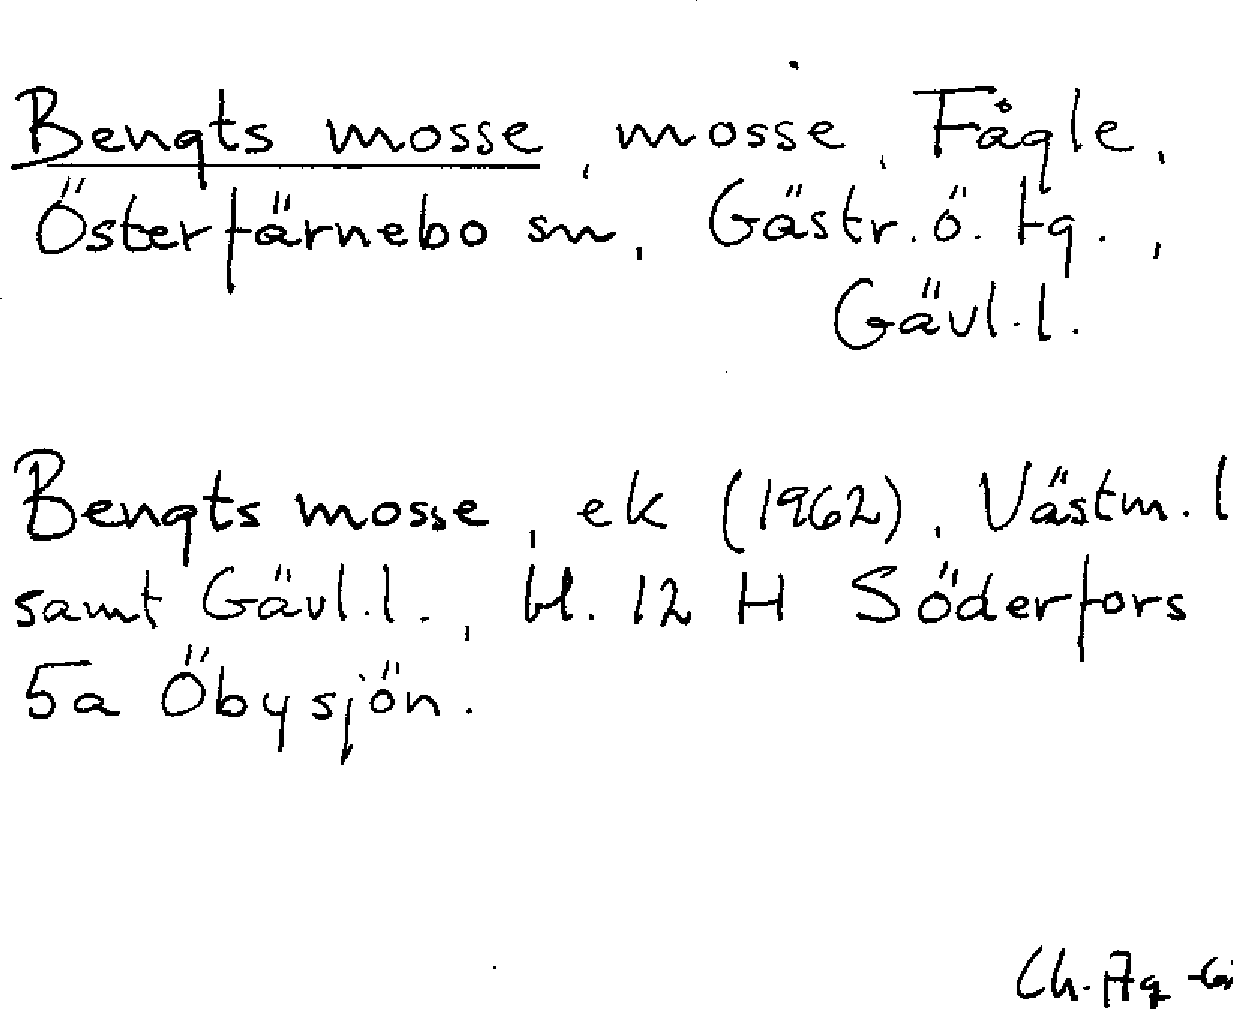 Bengts mosse, mosse, Fågle,
Österfärnebo sn, Gästr. ö. tg.,
Gävl. l.
Bengts mosse, ek (1962), Västm. l
samt Gävl. l., bl. 12 H Söderfors
5a Öbysjön.
Ch. Ag